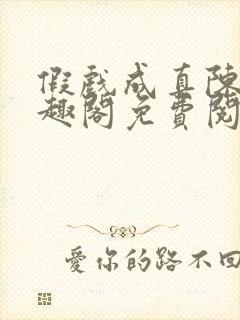 假戏成真陈
趣阁免费阅
爱你的路不回